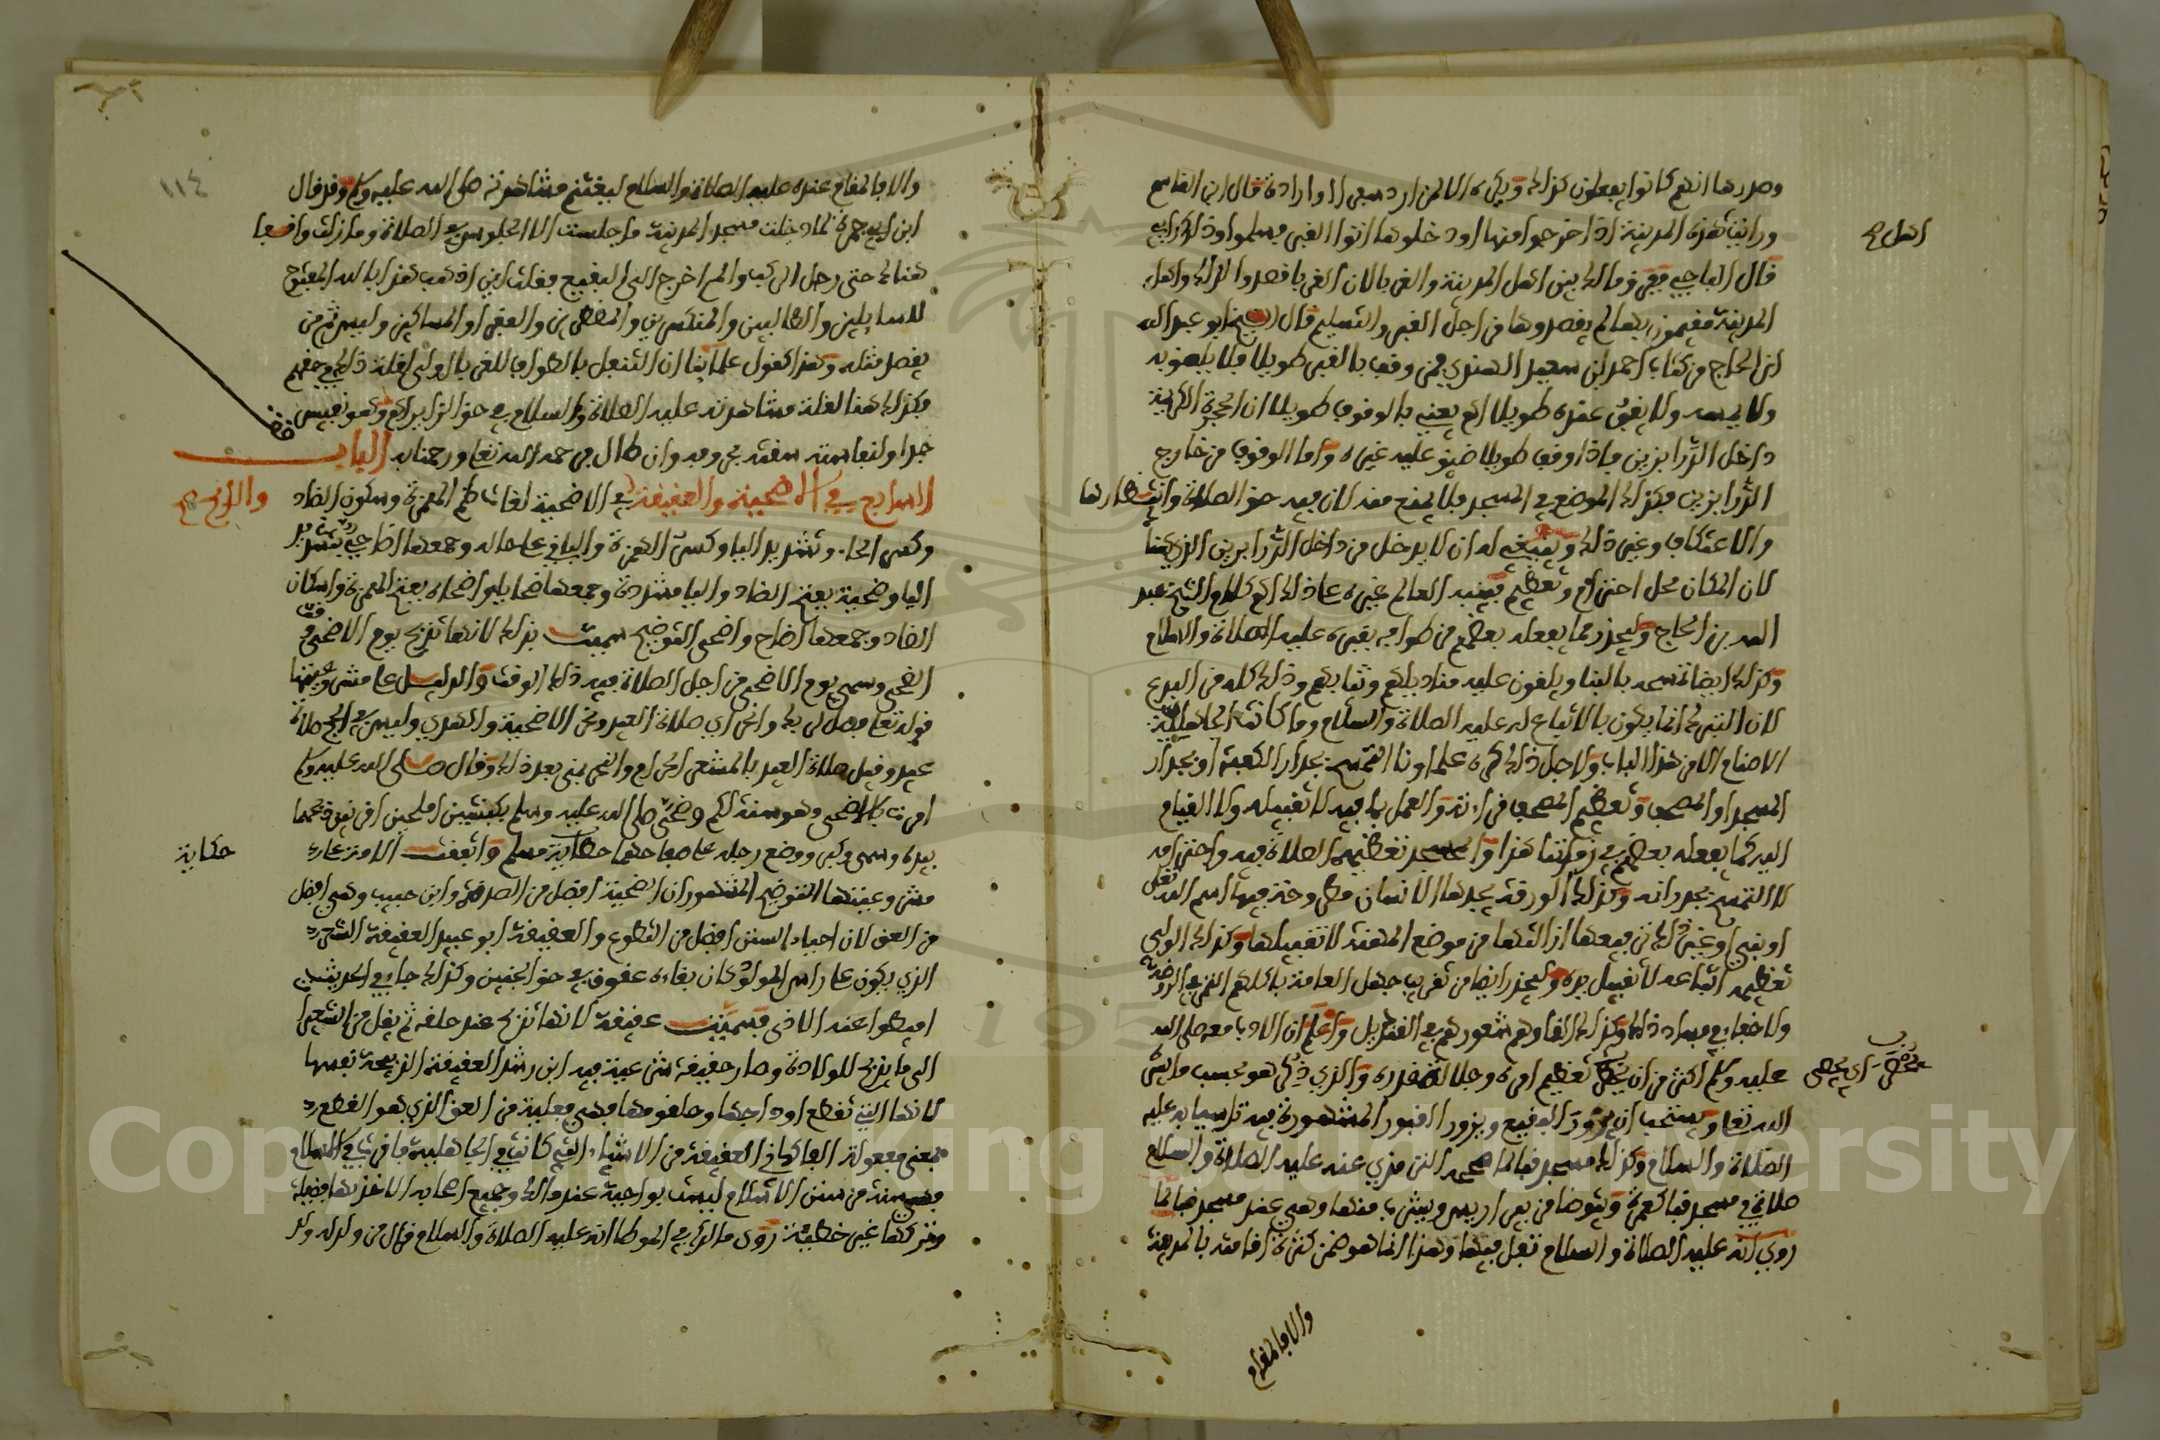 وصدرها انهم كانوا يفعلون كذلك ويكره الا لمن اراد سفر او اراده قال ابن القاسم
ورايت اهل المدينة اذا خرجوا منها او دخلوها اتوا القبر فسلموا وذلك رايي
اهل صح
قال الباجي ففرق مالك بين اهل المدينة والغربا لان الغربا قصدوا لذلك واهل
المدينة مقيمون بها لم يقصدوها من اجل القبر والتسليم قال الشيخ ابو عبد الله
ابن الحاج من كتاب احمد ابن سعيد الهندي فمن وقف بالقبر طويلا فلا يلصق به
ولا يمسه ولا يقف عنده طويلا انتهى يعني بالوقوف طويلا ان الحجرة الكريمة
داخل الدرابزين فاذا وقف طويلا ضيق على غيره واما الوقوف من خارج
الدرابزين فكذلك الموضع في المسجد فلا يمنع منه لان فيه حق الصلاة وانتظارها
والاعتكاف وغير ذلك وينبغي له ان لا يدخل من داخل الدرابزين الذي هنا
لان المكان محل احترام وتعظيم فينبه العالم غيره على ذلك انتهى كلام الشيخ عبد
الله بن الحاج وليحذر مما يفعله بعضهم من طوافه بقبره عليه الصلاة والسلام
وكذلك ايضا تمسحه بالبنا ويلقون عليه مناديلهم وثيابهم وذلك كله من البدع
لان التبرك انما يكون بالاتباع له عليه الصلاة والسلام وما كانت الجاهلية
الاصنام الا من هذا الباب ولاجل ذلك كره علماونا التمسح بجدار الكعبة او بجدار
المسجد او المصحف وتعظيم المصحف قراءته والعمل بما فيه لا تقبيله ولا القيام
اليه كما يفعله بعضهم في زماننا هذا والمسجد تعظيمه الصلاة فيه واحترامه
لا التمسح بجدرانه وكذلك الورقة يجدها الانسان مطروحة فيها اسم الله تعلى
او نبي او غير ذلك ترفيعها ازالتها من موضع المهنة لا تقبيلها وكذلك الولي
تعظيمه اتباعه لا تقبيل يده وليحذر ايضا من تقريب جهل العامة باكلهم التمر في الروضة
ولا خفا في فساد ذلك وكذلك القاوهم شعورهم في القناديل واعلم ان الادب معه صلى الله
عليه وسلم اكثر من ان يحصر تعظيم امره وجلالة قدره والذي ذكر هو بحسب ما يسر
يحصر اي يحصى
الله تعا ويستحب ان يزور البقيع ويزور القبور المشهورة فيه تاسيا به عليه
الصلاة والسلام وكذلك مسجد قبا لما صح عند الترمذي عنه عليه الصلاة والسلام
صلاة في مسجد قبا كعمرة ويتوضا من بير اريس ويشرب منها وهي عند مسجد قبا لما
روي انه عليه الصلاة والسلام تفل فيها وهذا انما هو فيمن كثرت اقامته بالمدينة
والا فالمقام
١١٤
والا فالمقام عنده عليه الصلاة والسلام ليغتنم مشاهدته صلى الله عليه وسلم وقد قال
ابن ابي جمرة لما دخلت مسجد المدينة ما جلست الا الجلوس في الصلاة وما زلت واقفا
هناك حتى رحل الركب ولم اخرج الى البقيع فقلت اين اذهب هذا باب الله المفتوح
للسايلين والطالبين والمنكسرين والمضطرين والفقرا والمساكين وليس ثم من
يقصد مثله وهذا كقول علماينا ان التنفل بالطواف للغربا اولى لقلة ذلك في حقهم
فكذلك هنا لقلة مشاهدته عليه الصلاة والسلام في حق الزاير انتهى وهو نفيس
قف
جدا ولنفاسته سقته بحروفه وان طال فرحمه الله تعا ورحمنا به الباب
السابع في الاضحية والعقيقة في الاضحية لغات ضم الهمزة وسكون الضاد
والذبح صح
وكسر الحاء وتشديد اليا وكسر الهمزة والباقي على حاله وجمعها اضاحي بتشديد
اليا وضحية بفتح الضاد واليا مشددة وجمعها ضحايا واضحاه بفتح الهمزة واسكان
الضاد وجمعها اضاح واضحى التوضيح سميت بذلك لانها تذبح يوم الاضحى وقت
الضحى وسمي يوم الاضحى من اجل الصلاة فيه ذلك الوقت والدليل على مشروعيتها
قوله تعا فصل لربك وانحر اي صلاة العيد ونحر الاضحية والهدي وليس في الحج صلاة
عيد وقيل صلاة العيد بالمشعر الحرام والنحر بمنى بعد ذلك وقال صلى الله عليه وسلم
امرت بالاضحى وهو سنة لكم وضحى صلى الله عليه وسلم بكبشين املحين اقرنين ذبحهما
بيده وسمى وكبر ووضع رجله على صفاحهما حكاية مسلم واتفقت الامة على
حكاية
مشروعيتها التوضيح المشهور ان الضحية افضل من الصدقة وابن حبيب وهي افضل
من العتق لان احياء السنن افضل من التطوع والعقيقة ابو عبيد العقيقة الشعر
الذي يكون على راس المولود كان بقاءه عقوق في حق الجنين وكذلك جا في الحديث
اميطوا عنه الاذى فسميت عقيقة لانها تذبح عند حلقه ثم نقل من الشعر
الى ما يذبح للولادة وصار حقيقة شرعية فيه ابن رشد العقيقة الذبيحة نفسها
لانها التي تقطع اوداجها وحلقومها فهي فعيلة من العق الذي هو القطع
بمعنى مفعولة الفاكهاني العقيقة من الاشياء التي كانت في الجاهلية فاقرت في الاسلام
فهي سنة من سنن الاسلام ليست بواجبة عند مالك وجميع اصحابه الاخذ بها فضيلة
وتركها غير خطيئة روى مالك في الموطا انه عليه الصلاة والسلام قال من ولد له ولد